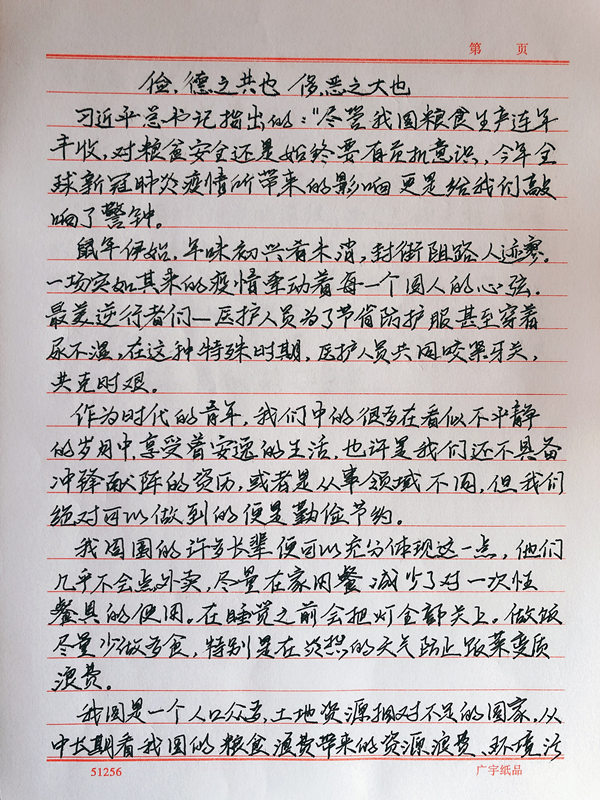 第 页
俭，德之共也 侈，恶之大也
习近平总书记指出的："尽管我国粮食生产连年
丰收，对粮食安全还是始终要有危机意识，今年全
球新冠肺炎疫情所带来的影响更是给我们敲
响了警钟。
鼠年伊始，年味初兴着未消，封街阻路人迹寥。
一场突如其来的疫情牵动着每一个国人的心弦。
最美逆行者们—医护人员为了节省防护服甚至穿着
尿不湿，在这种特殊时期，医护人员共同咬紧牙关，
共克时艰。
作为时代的青年，我们中的很多在看似不平静
的岁月中，享受着安逸的生活，也许是我们还不具备
冲锋献阵的资历，或者是从事领域不同，但我们
绝对可以做到的便是勤俭节约。
我周围的许多长辈便可以充分体现这一点，他们
几乎不会点外卖，尽量在家用餐减少了对一次性
餐具的使用。在睡觉之前会把灯全部关上。做饭
尽量少做多食，特别是在炎热的天气防止饭菜变质
浪费。
我国是一个人口众多，土地资源相对不足的国家，从
中长期看我国的粮食浪费带来的资源浪费、环境污
51256 广宇纸品